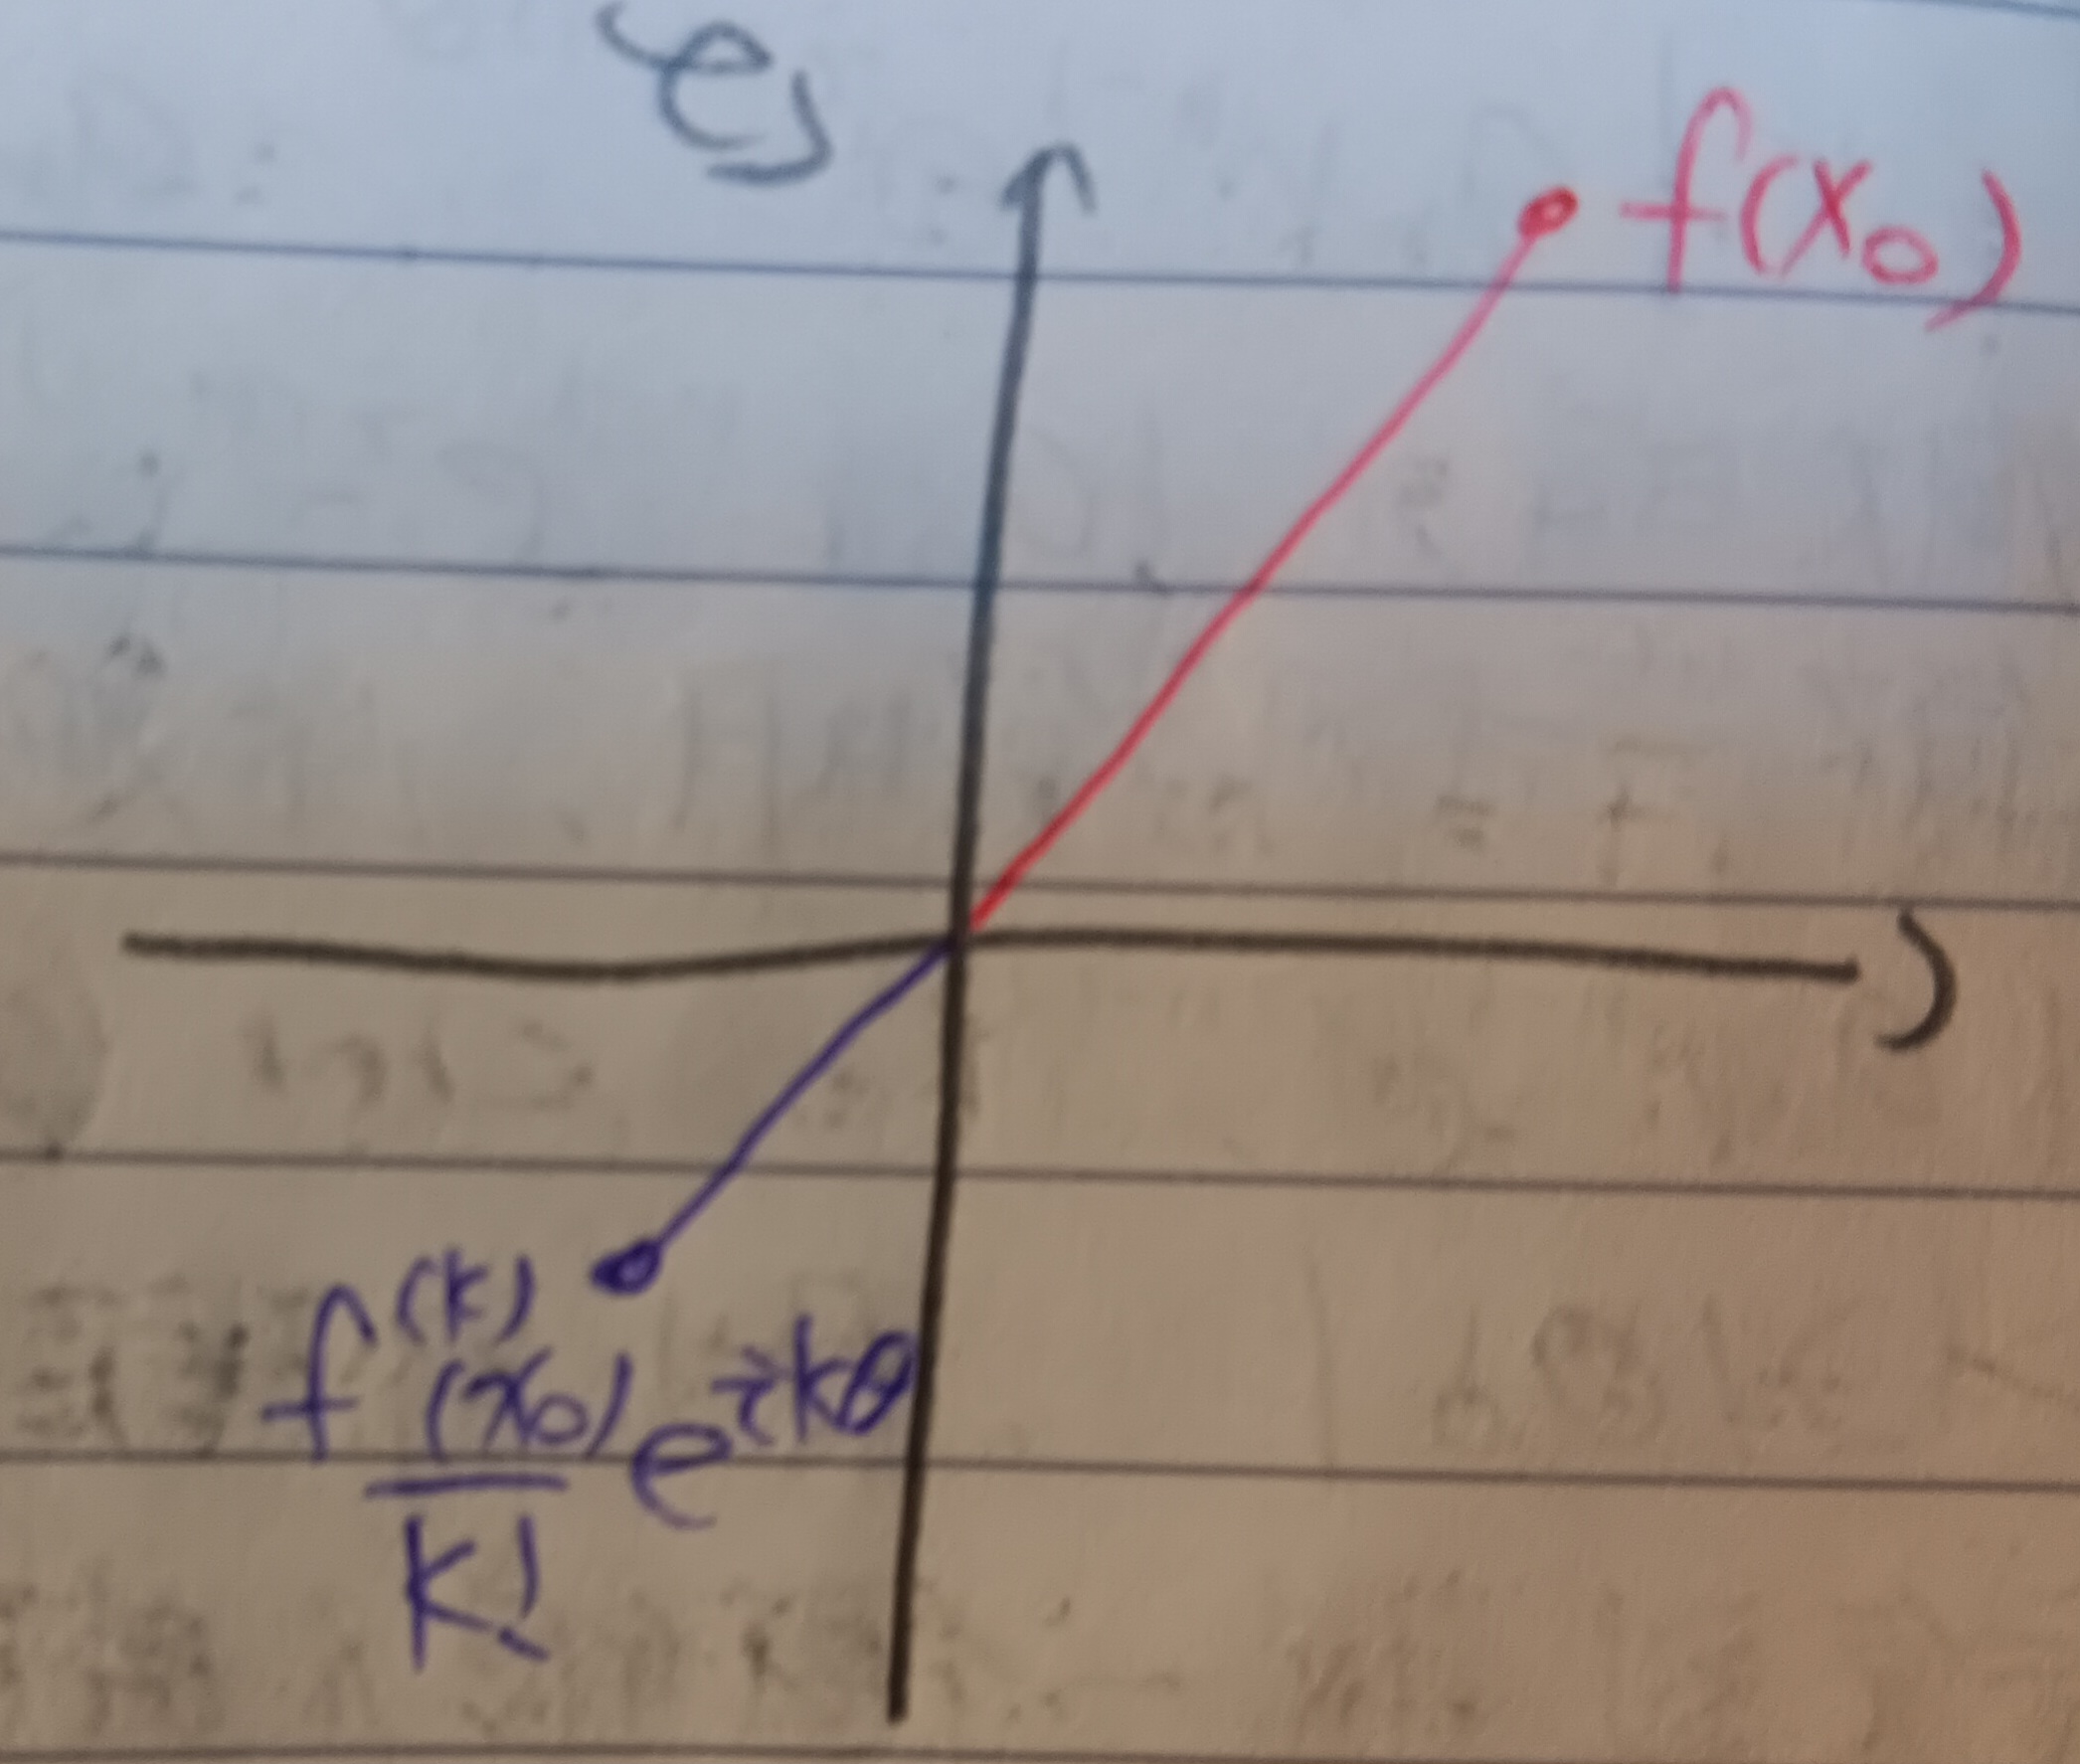 f(x₀)
f⁽ᵏ⁾(x₀)/k! e^{ikθ}